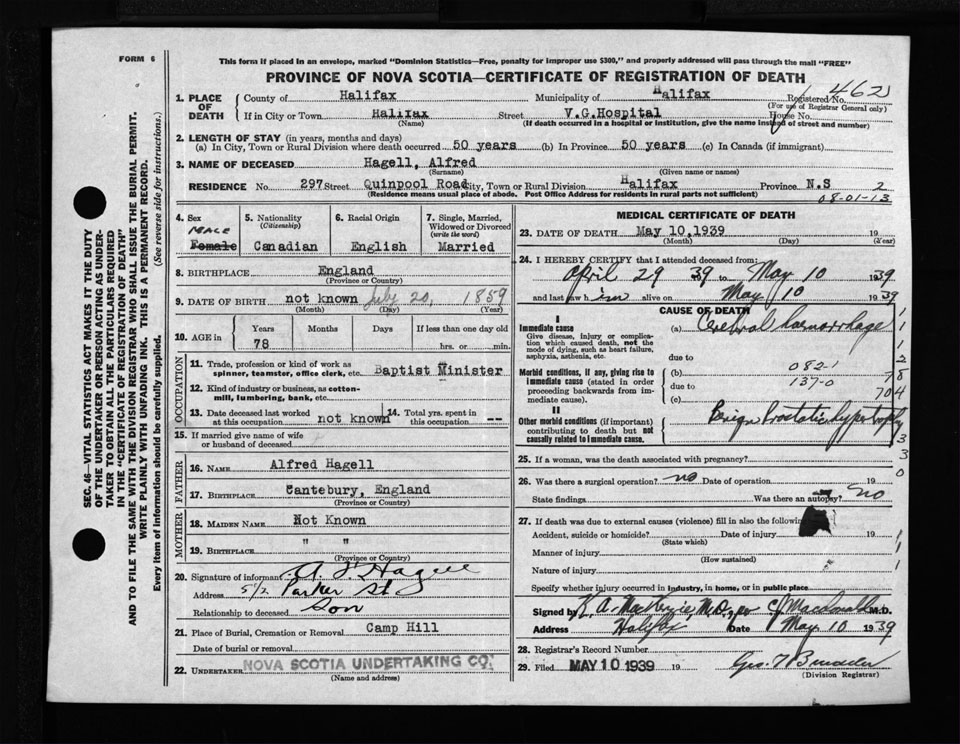 FORM 6
This form if placed in an envelope, marked "Dominion Statistics—Free, penalty for improper use $300," and properly addressed will pass through the mail "FREE"
PROVINCE OF NOVA SCOTIA—CERTIFICATE OF REGISTRATION OF DEATH
SEC. 46—VITAL STATISTICS ACT MAKES IT THE DUTY
OF THE UNDERTAKER OR PERSON ACTING AS UNDER-
TAKER TO OBTAIN ALL THE PARTICULARS REQUIRED
IN THE "CERTIFICATE OF REGISTRATION OF DEATH"
AND TO FILE THE SAME WITH THE DIVISION REGISTRAR WHO SHALL ISSUE THE BURIAL PERMIT.
WRITE PLAINLY WITH UNFADING INK. THIS IS A PERMANENT RECORD.
Every item of information should be carefully supplied. (See reverse side for instructions.)
1. PLACE OF DEATH County of Halifax Municipality of Halifax Registered No. 462
(For use of Registrar General only)
If in City or Town Halifax Street V.G.Hospital House No.
(Name) (If death occurred in a hospital or institution, give the name instead of street and number)
2. LENGTH OF STAY (in years, months and days)
(a) In City, Town or Rural Division where death occurred 50 years (b) In Province 50 years (c) In Canada (if immigrant)
3. NAME OF DECEASED Hagell, Alfred
(Surname) (Given name or names)
RESIDENCE No. 297 Street Quinpool Road City, Town or Rural Division Halifax Province N.S 2
(Residence means usual place of abode. Post Office Address for residents in rural parts not sufficient) 08-01-13
4. Sex Male Female
5. Nationality (Citizenship) Canadian
6. Racial Origin English
7. Single, Married, Widowed or Divorced (write the word) Married
8. BIRTHPLACE England
(Province or Country)
9. DATE OF BIRTH not known July 20, 1859
(Month) (Day) (Year)
10. AGE Years Months Days If less than one day old
78 hrs. or min.
OCCUPATION
11. Trade, profession or kind of work as spinner, teamster, office clerk, etc. Baptist Minister
12. Kind of industry or business, as cotton-mill, lumbering, bank, etc.
13. Date deceased last worked at this occupation not known
14. Total yrs. spent in this occupation --
15. If married give name of wife or husband of deceased
FATHER
16. NAME Alfred Hagell
17. BIRTHPLACE Cantebury, England
(Province or Country)
MOTHER
18. MAIDEN NAME Not Known
19. BIRTHPLACE " "
(Province or Country)
20. Signature of informant A. Hagell
Address 51/2 Parker St
Relationship to deceased Son
21. Place of Burial, Cremation or Removal Camp Hill
Date of burial or removal
22. UNDERTAKER NOVA SCOTIA UNDERTAKING CO.
(Name and address)
MEDICAL CERTIFICATE OF DEATH
23. DATE OF DEATH May 10,1939 19
(Month) (Day) (Year)
24. I HEREBY CERTIFY that I attended deceased from:
April 29 1939 to May 10 1939
and last saw him alive on May 10 1939
CAUSE OF DEATH
I
Immediate cause
Give disease, injury or complication which caused death, not the mode of dying, such as heart failure, asphyxia, asthenia, etc.
(a) Cerebral haemorrhage
due to
Morbid conditions, if any, giving rise to immediate cause (stated in order proceeding backwards from immediate cause).
(b) 082-1
due to 137-0
(c)
II
Other morbid conditions (if important) contributing to death but not causally related to immediate cause.
Benign Prostatic hypertrophy
1
1
2
78
704
3
3
0
25. If a woman, was the death associated with pregnancy?
26. Was there a surgical operation? no Date of operation 19
State findings Was there an autopsy? no
27. If death was due to external causes (violence) fill in also the following:
Accident, suicide or homicide? Date of injury 19
(State which)
Manner of injury
(How sustained)
Nature of injury
Specify whether injury occurred in industry, in home, or in public place
Signed by K. A. MacKenzie, M.D. per C J Macdonald M.D.
Address Halifax Date May 10 1939
28. Registrar's Record Number
29. Filed MAY 10 1939 19 Geo. T
(Division Registrar)